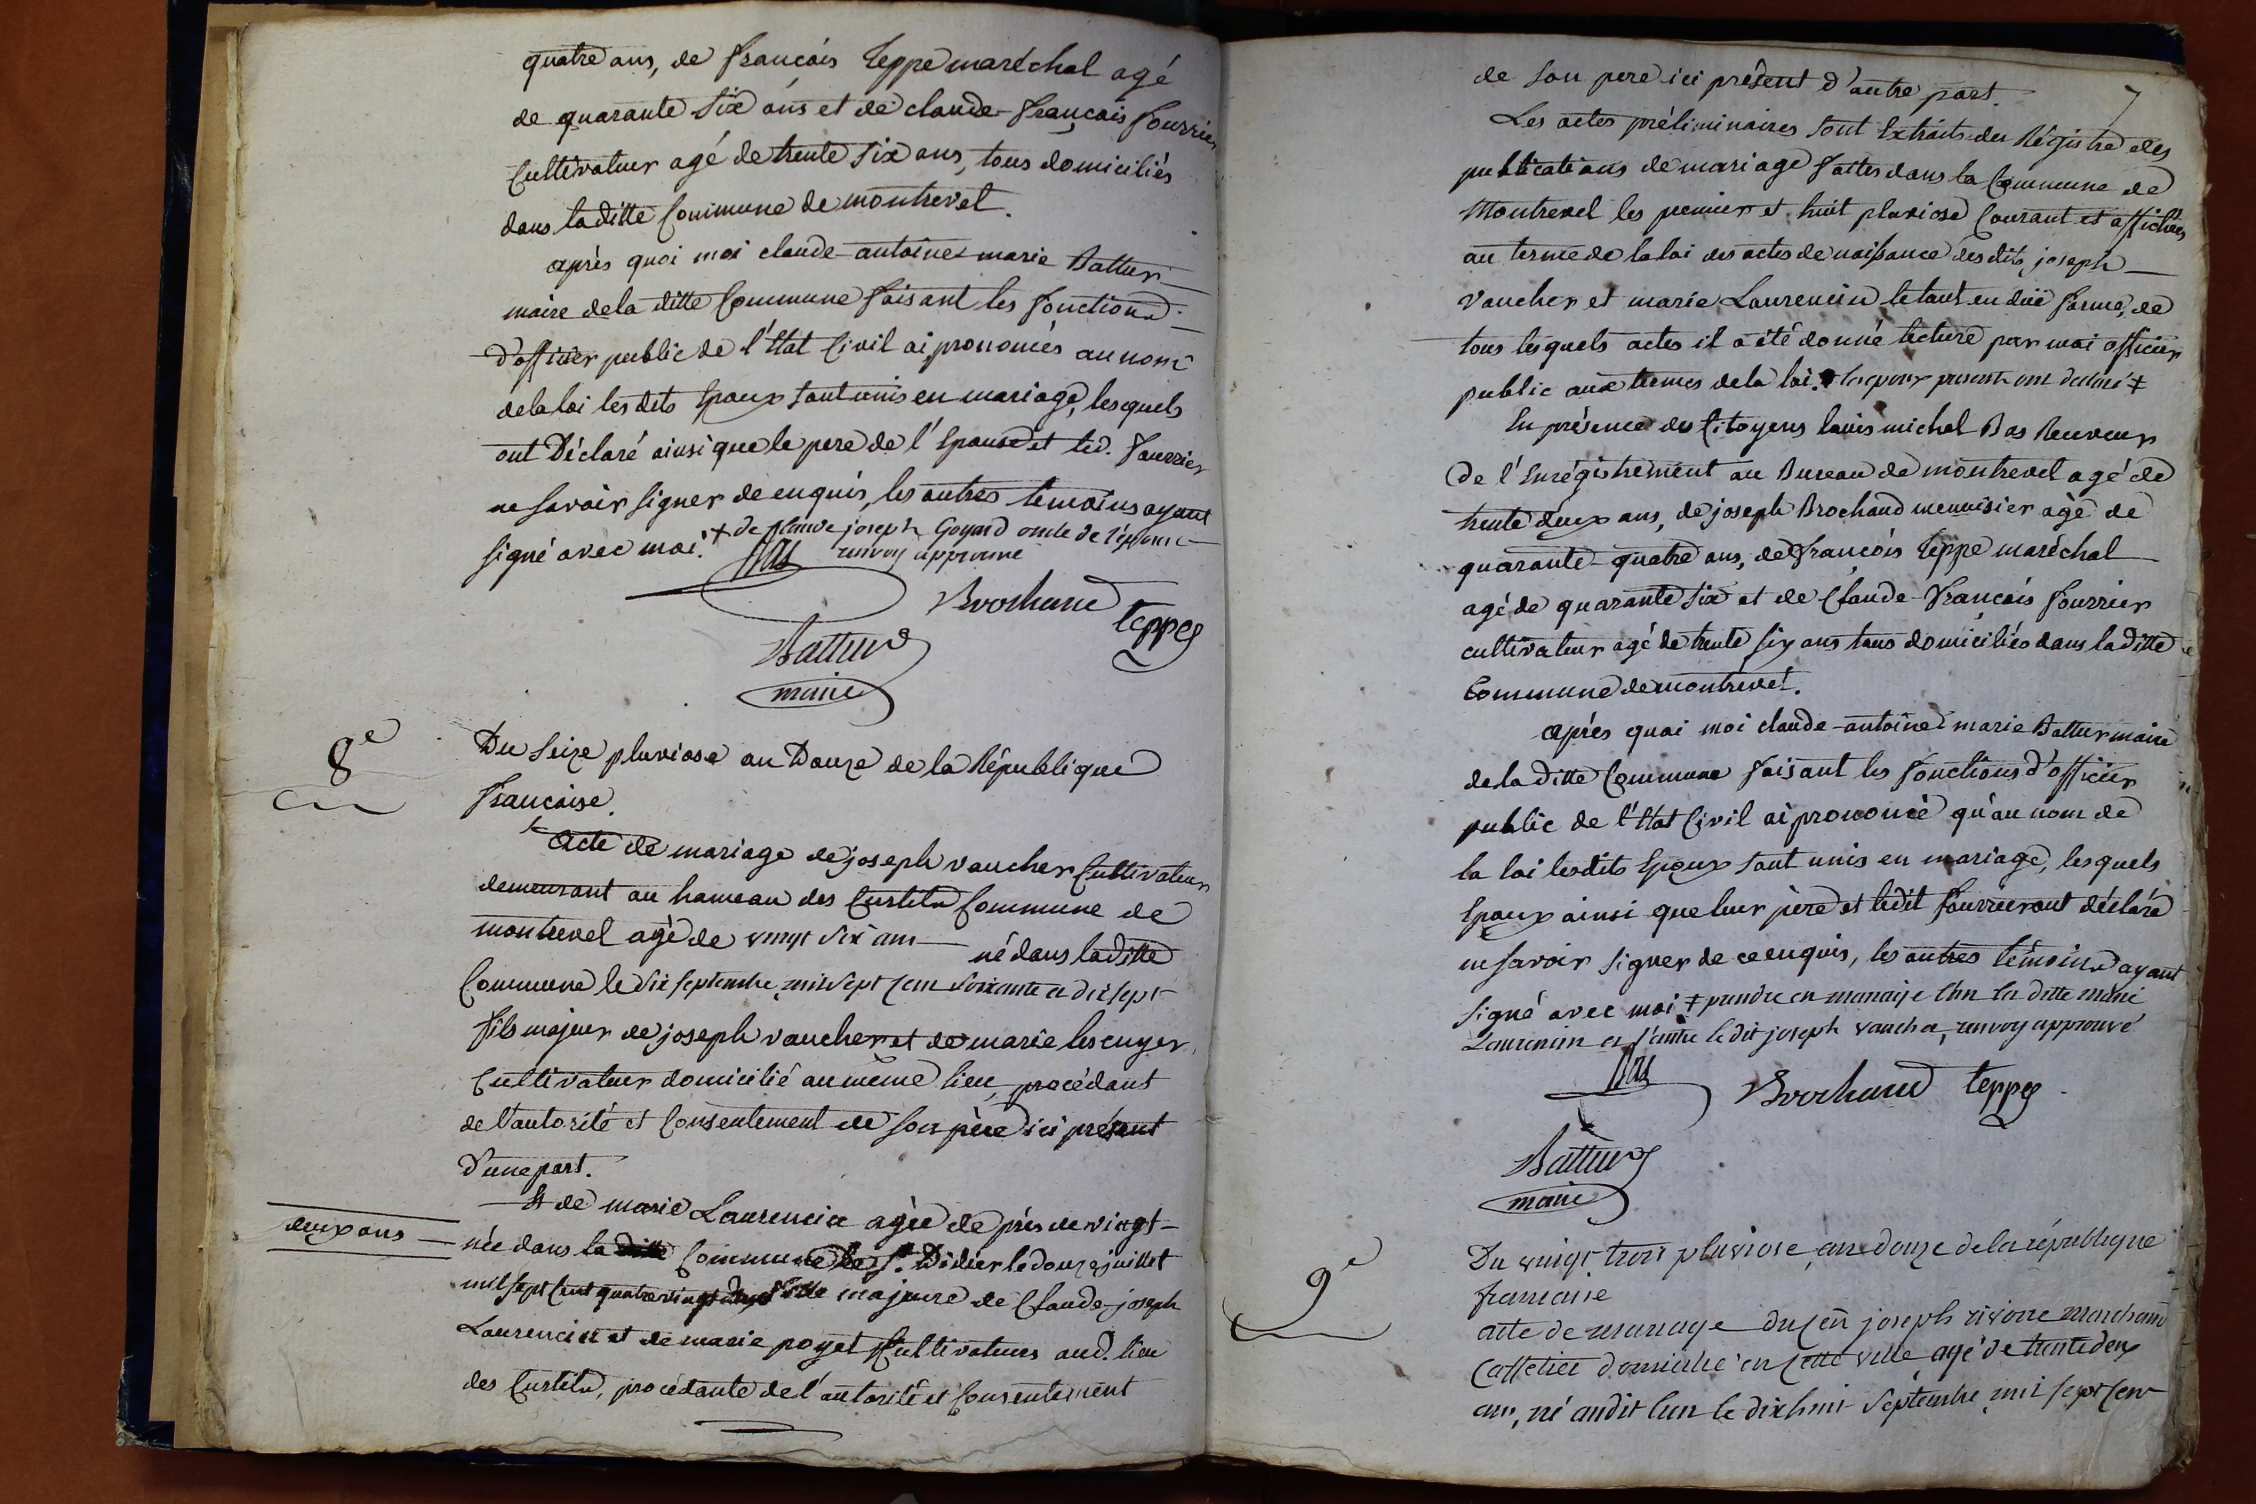 quatre ans, de françois teppe maréchal agé
de quarante six ans et de claude-françois fourrier
Cultivateur agé de trente six ans, tous domiciliés
dans la ditte Commune de montrevel.
après quoi moi claude-antoine marie Battur
maire de la ditte Commune faisant les fonctions
d'officier public de l'état Civil ai prononcés au nom
de la loi les dits Epoux sont unis en mariage, lesquels
ont Déclaré ainsi que le pere de l'épouse et led. fourrier
ne savoir signer de enquis, les autres temoins ayant
signé avec moi. + de claude joseph Goyard oncle de l'épouse
renvoy approuvé
Bas
Brochand
teppe
Battur
maire
8e
Du seize pluviose an Douze de la République
française.
Acte de mariage de joseph vaucher Cultivateur
demeurant au hameau des Curtils Commune de
montrevel agé de vingt six ans né dans la ditte
Commune le six septembre mil sept cent soixante et dix sept
fils majeur de joseph vaucher et de marie lescuyer,
Cultivateur domicilié au même lieu, procédant
de l'autorité et Consentement de son père ici présent
d'une part.
Et de marie Laurencin agée de près de vingt-
deux ans
née dans la ditte Commune de St. Didier le douze juillet
mil sept cent quatre vingt deux fille majeure de Claude-joseph
Laurencin et de marie poyet Cultivateurs aud. lieu
des Curtils, procédante de l'autorité et Consentement
7
de son pere ici présent d'autre part.
Les actes préliminaires sont Extraits du Régistre des
publications de mariage faites dans la Commune de
Montrevel les premier et huit pluviose Courant et affichés
au terme de la loi des actes de naissance desdits joseph
vaucher et marie Laurencin le tout en dûë forme, de
tous lesquels actes il a été donné lecture par moi officier
public aux termes de la loi. les epoux presents ont declaré ‡
En présence des Citoyens louis michel Bas Receveur
de l'Enrégistrement au Bureau de montrevel agé de
trente deux ans, de joseph Brochand menuisier agé de
quarante-quatre ans, de françois teppe maréchal
agé de quarante six et de Claude-François fourrier
cultivateur agé de trente six ans tous domiciliés dans la ditte
Commune de montrevel.
après quoi moi claude-antoine marie Battur maire
de la ditte Commune faisant les fonctions d'officier
public de l'état Civil ai prononcé qu'au nom de
la loi lesdits Epoux sont unis en mariage, lesquels
Epoux ainsi que leur père et ledit fourrier ont déclaré
ne savoir signer de ce enquis, les autres témoins ayant
signé avec moi ‡ prendre en mariage l'un la ditte marie
Laurencin et l'autre le dit joseph vaucher, renvoy approuvé
Bas
Brochand
teppe
Battur
maire
9e
Du vingt trois pluviose, an douze de la république
francaise
acte de mariage du cen joseph marchand
caffetier domicilié en cette ville agé de trente deux
ans, né audit lieu le dix huit Septembre mil sept cent